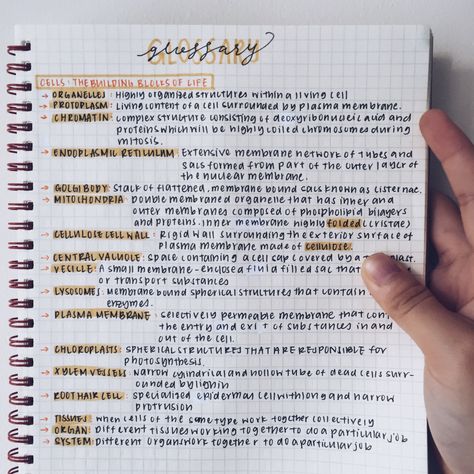 GLOSSARY
glossary
CELLS: THE BUILDING BLOCKS OF LIFE
→ ORGANELLES: Highly organized structures within a living cell
→ PROTOPLASM: Living content of a cell surrounded by plasma membrane.
→ CHROMATIN: complex structure consisting of deoxyribonucleic acid and
proteins which will be highly coiled chromosomes during
mitosis.
→ ENDOPLASMIC RETICULUM: Extensive membrane network of tubes and
sacs formed from part of the outer layer of
the nuclear membrane.
→ GOLGI BODY: Stack of flattened, membrane bound sacs known as cisternae.
→ MITOCHONDRIA: double membraned organelle that has inner and
outer membranes composed of phospholipid bilayers
and proteins. inner membrane highly folded (cristae)
→ CELLULOSE CELL WALL: Rigid wall surrounding the exterior surface of
plasma membrane made of cellulose.
→ CENTRAL VACUOLE: space containing a cell sap covered by a
→ VESICLE: A small membrane-enclosed fluid filled sac that
or transport substances
→ LYSOSOMES: Membrane bound spherical structures that contain
enzymes.
→ PLASMA MEMBRANE: selectively permeable membrane that
the entry and exit of substances in and
out of the cell.
→ CHLOROPLASTS: SPHERICAL STRUCTURES THAT ARE RESPONSIBLE FOR
photosynthesis.
→ XYLEM VESSELS: Narrow cylindrical and hollow tube of dead cells surr-
ounded by lignin
→ ROOT HAIR CELL: specialized epidermal cell with long and narrow
protrusion
→ TISSUES: when cells of the same type work together collectively
→ ORGAN: Different tissues working together to do a particular job
→ SYSTEM: Different organs work together to do a particular job